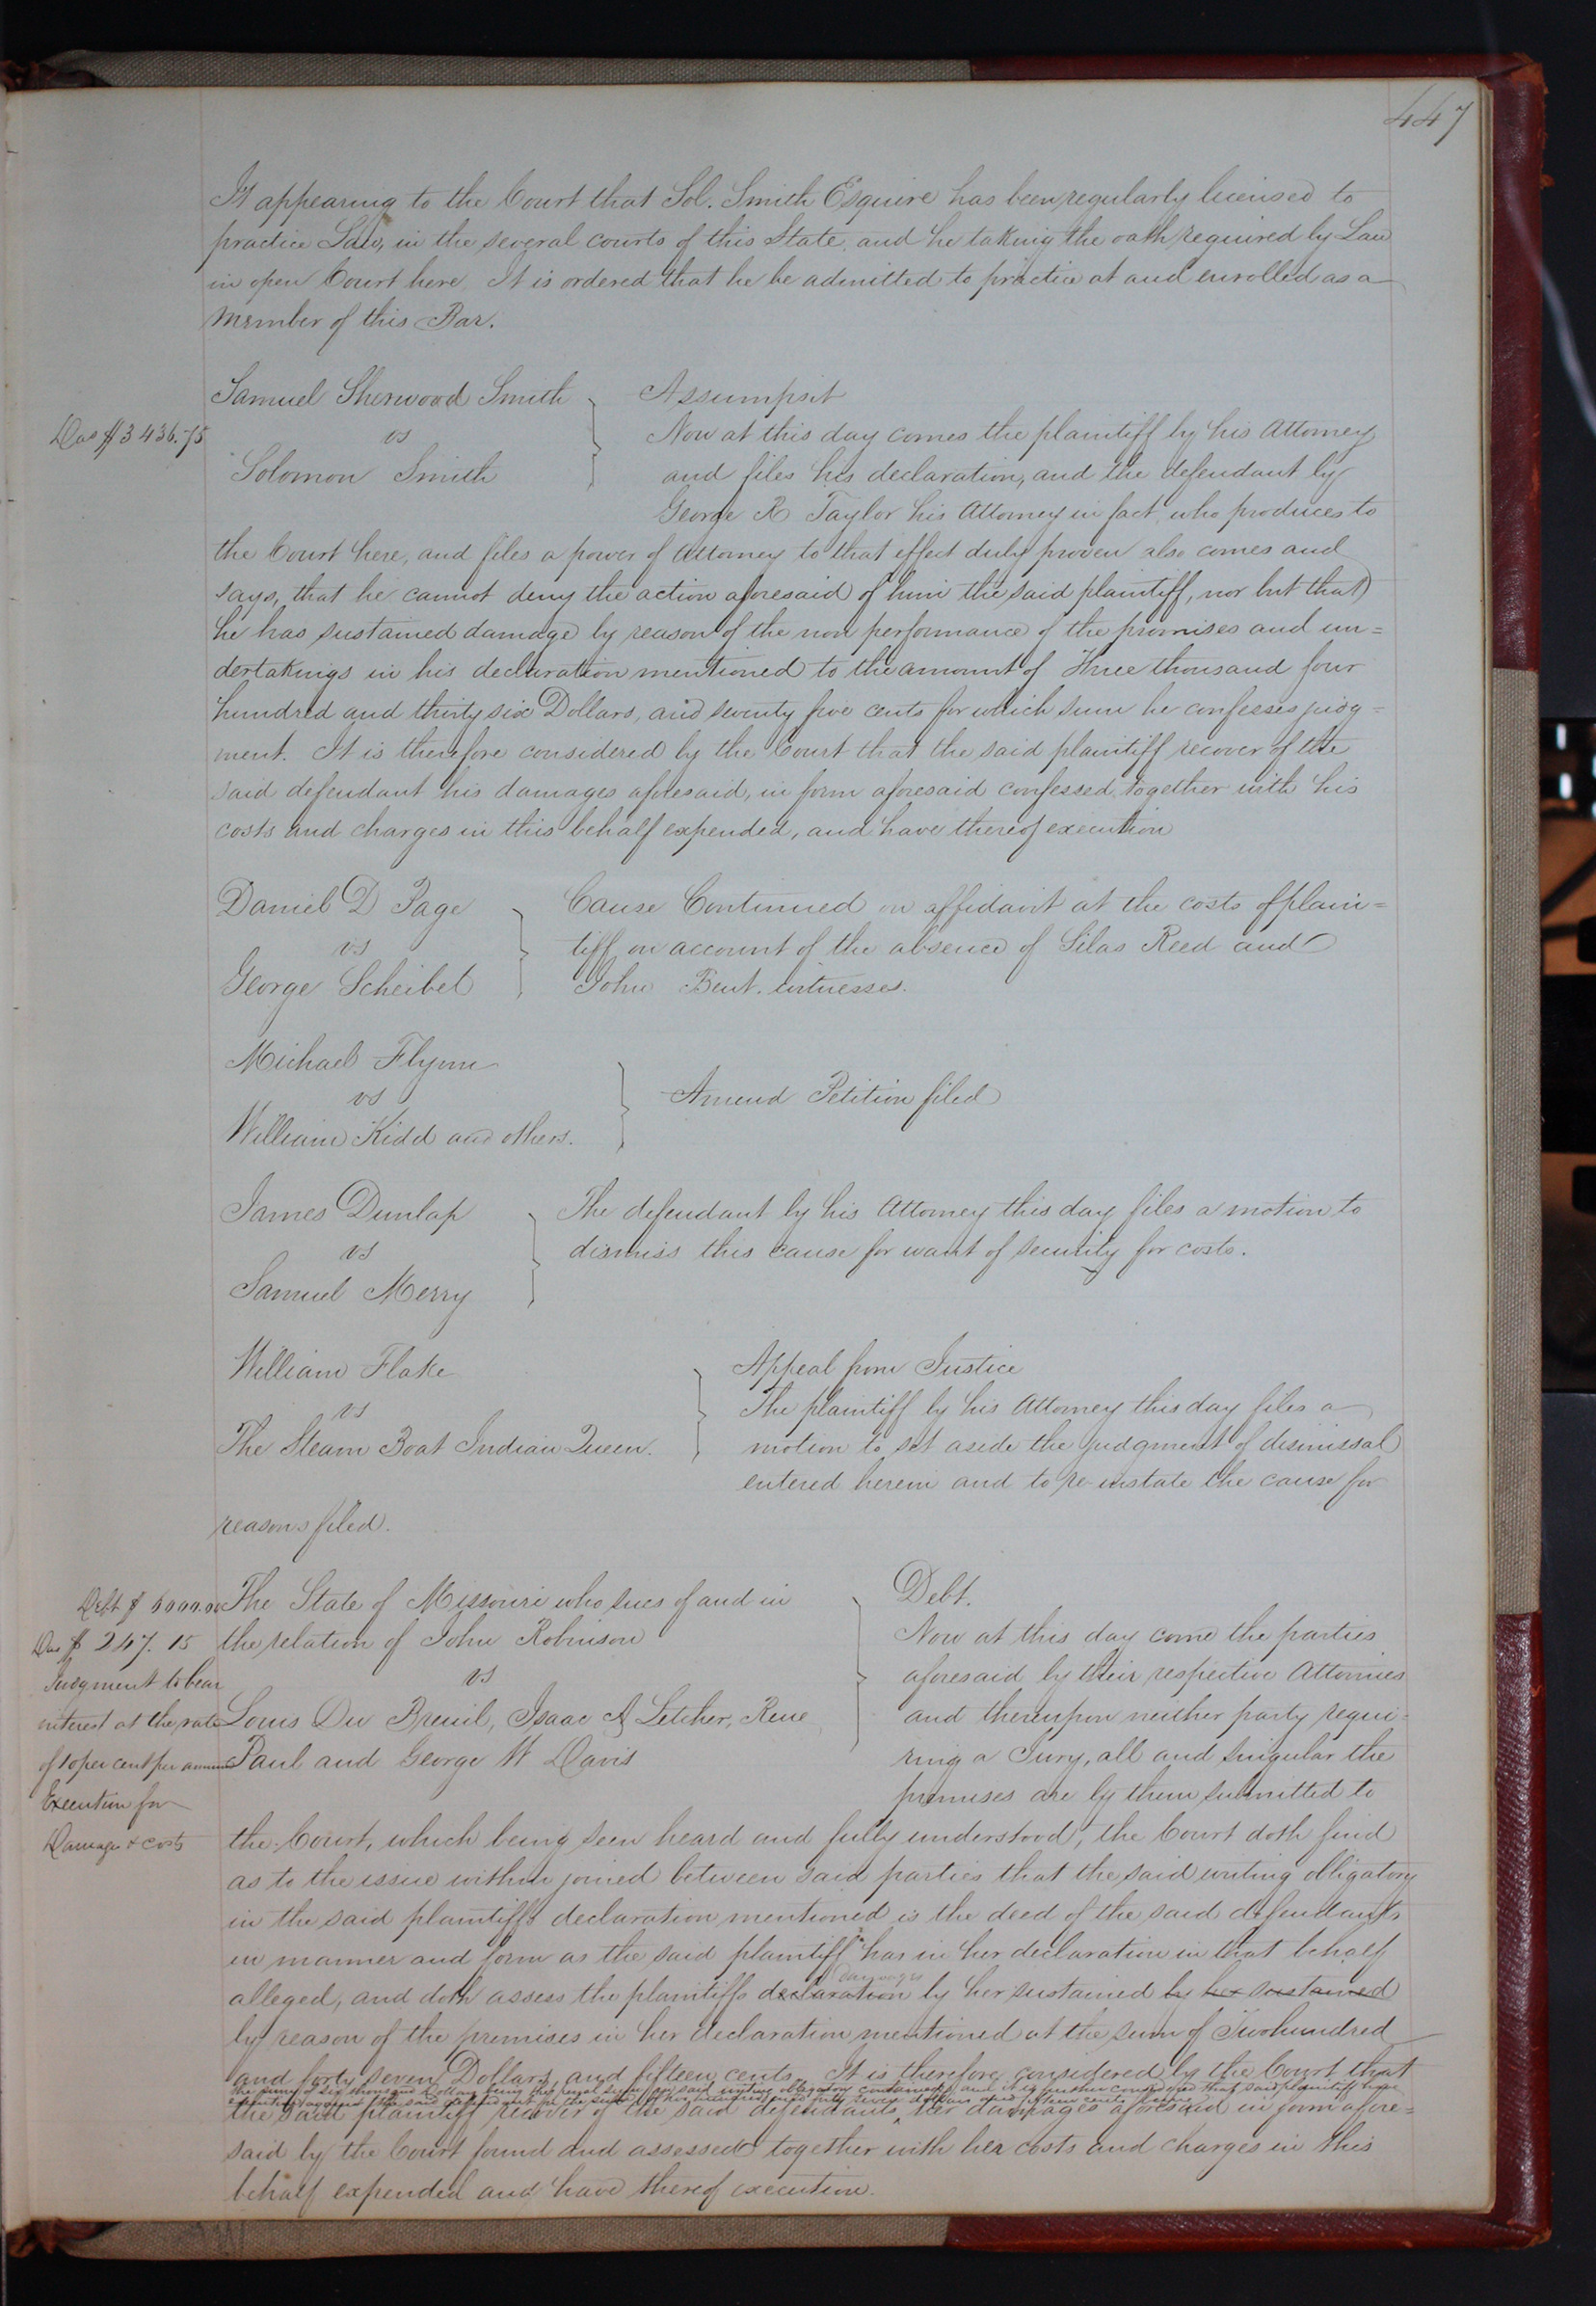 447
It appearing to the Court that Sol. Smith Esquire has been regularly licensed to
practice Law, in the several courts of this State, and he taking the oath required by Law
in open Court here, It is ordered that he be admitted to practice at and enrolled as a
Member of this Bar.
Samuel Sherwood Smith
vs
Solomon Smith
Das $3436.75
Assumpsit
Now at this day comes the plaintiff by his Attorney
and files his declaration, and the defendant by
George R Taylor his Attorney in fact, who produces to
the Court here, and files a power of Attorney to that effect duly proven also comes and
says, that he cannot deny the action aforesaid of him the said plaintiff, nor but that
he has sustained damage by reason of the non performance of the promises and un=
dertakings in his declaration mentioned to the amount of Three thousand four
hundred and thirty six Dollars, and seventy five cents for which sum he confesses judg=
ment. It is therefore considered by the Court that the said plaintiff recover of the
said defendant his damages aforesaid, in form aforesaid confessed together with his
costs and charges in this behalf expended, and have thereof execution
Daniel D Page
vs
George Scheibel
Cause Continued on affidavit at the costs of plain=
tiff on account of the absence of Silas Reed and
John Bent. witnesses.
Michael Flynn
vs
William Kidd and others.
Amend Petition filed
James Dunlap
vs
Samuel Merry
The defendant by his Attorney this day files a motion to
dismiss this cause for want of security for costs.
William Flake
vs
The Steam Boat Indian Queen.
Appeal from Justice
The plaintiff by his Attorney this day files a
motion to set aside the judgment of dismissal
entered herein and to re-instate the cause for
reasons filed.
Debt $6000.00
Das $247.15
Judgment to bear
interest at the rate
of 10 per cent per annum
Execution for
Damages & costs
The State of Missouri who sues of and in
the relation of John Robinson
vs
Louis Du Breuil, Isaac A Letcher, Rene
Paul and George W Davis
Debt.
Now at this day come the parties
aforesaid by their respective Attornies
and thereupon neither party requi=
ring a Jury, all and singular the
premises are by them submitted to
the Court, which being seen heard and fully understood, the Court doth find
as to the issue within joined between said parties that the said writing obligatory
in the said plaintiffs declaration mentioned is the deed of the said defendants
in manner and form as the said plaintiff has in her declaration in that behalf
damages
alleged, and doth assess the plaintiffs declaration by her sustained by her sustained
by reason of the premises in her declaration mentioned at the sum of Two hundred
and forty seven Dollars, and fifteen cents. It is therefore considered by the Court that
the sum of six thousand Dollars being the penal sum in said writing obligatory contained, and it is further considered that said plaintiff have
execution against the said defendant for the sum of two hundred and forty seven dollars and fifteen cents
the said plaintiff recover of the said defendants, her damages aforesaid in form afore=
said by the Court found and assessed together with her costs and charges in this
behalf expended and have thereof execution.